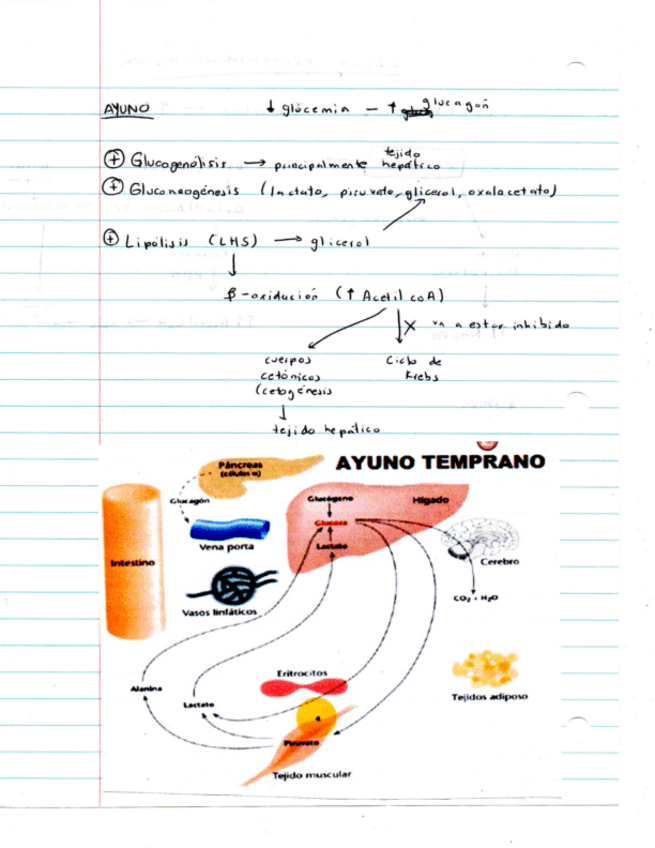 AYUNO ↓ glucemia – ↑ glucagón
⊕ Glucogenólisis → principalmente tejido hepático
⊕ Gluconeogénesis (lactato, piruvato, glicerol, oxalacetato)
⊕ Lipólisis (LHS) → glicerol
β-oxidación (↑ Acetil coA)
X va a estar inhibido
cuerpos cetónicos (cetogénesis
Ciclo de Krebs
tejido hepático
AYUNO TEMPRANO
Páncreas
(células α)
Glucagón
Vena porta
Intestino
Vasos linfáticos
Glucógeno
Hígado
Glucosa
Lactato
Cerebro
CO₂ + H₂O
Alanina
Lactato
Eritrocitos
4
Piruvato
Tejido muscular
Tejidos adiposo